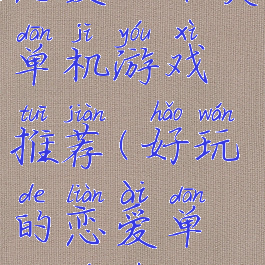 dān jī yóu xì
单机游戏
tuī jiàn hǎo wán
推荐(好玩
de liàn ài dān
的恋爱单